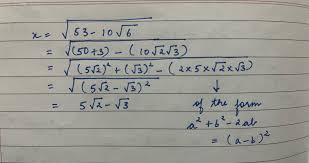 x = √(53 - 10√6)
= √((50+3) - (10√2√3))
= √((5√2)² + (√3)² - (2×5×√2×√3))
= √((5√2 - √3)²) ↓
= 5√2 - √3 of the form
a² + b² - 2ab
= (a-b)²